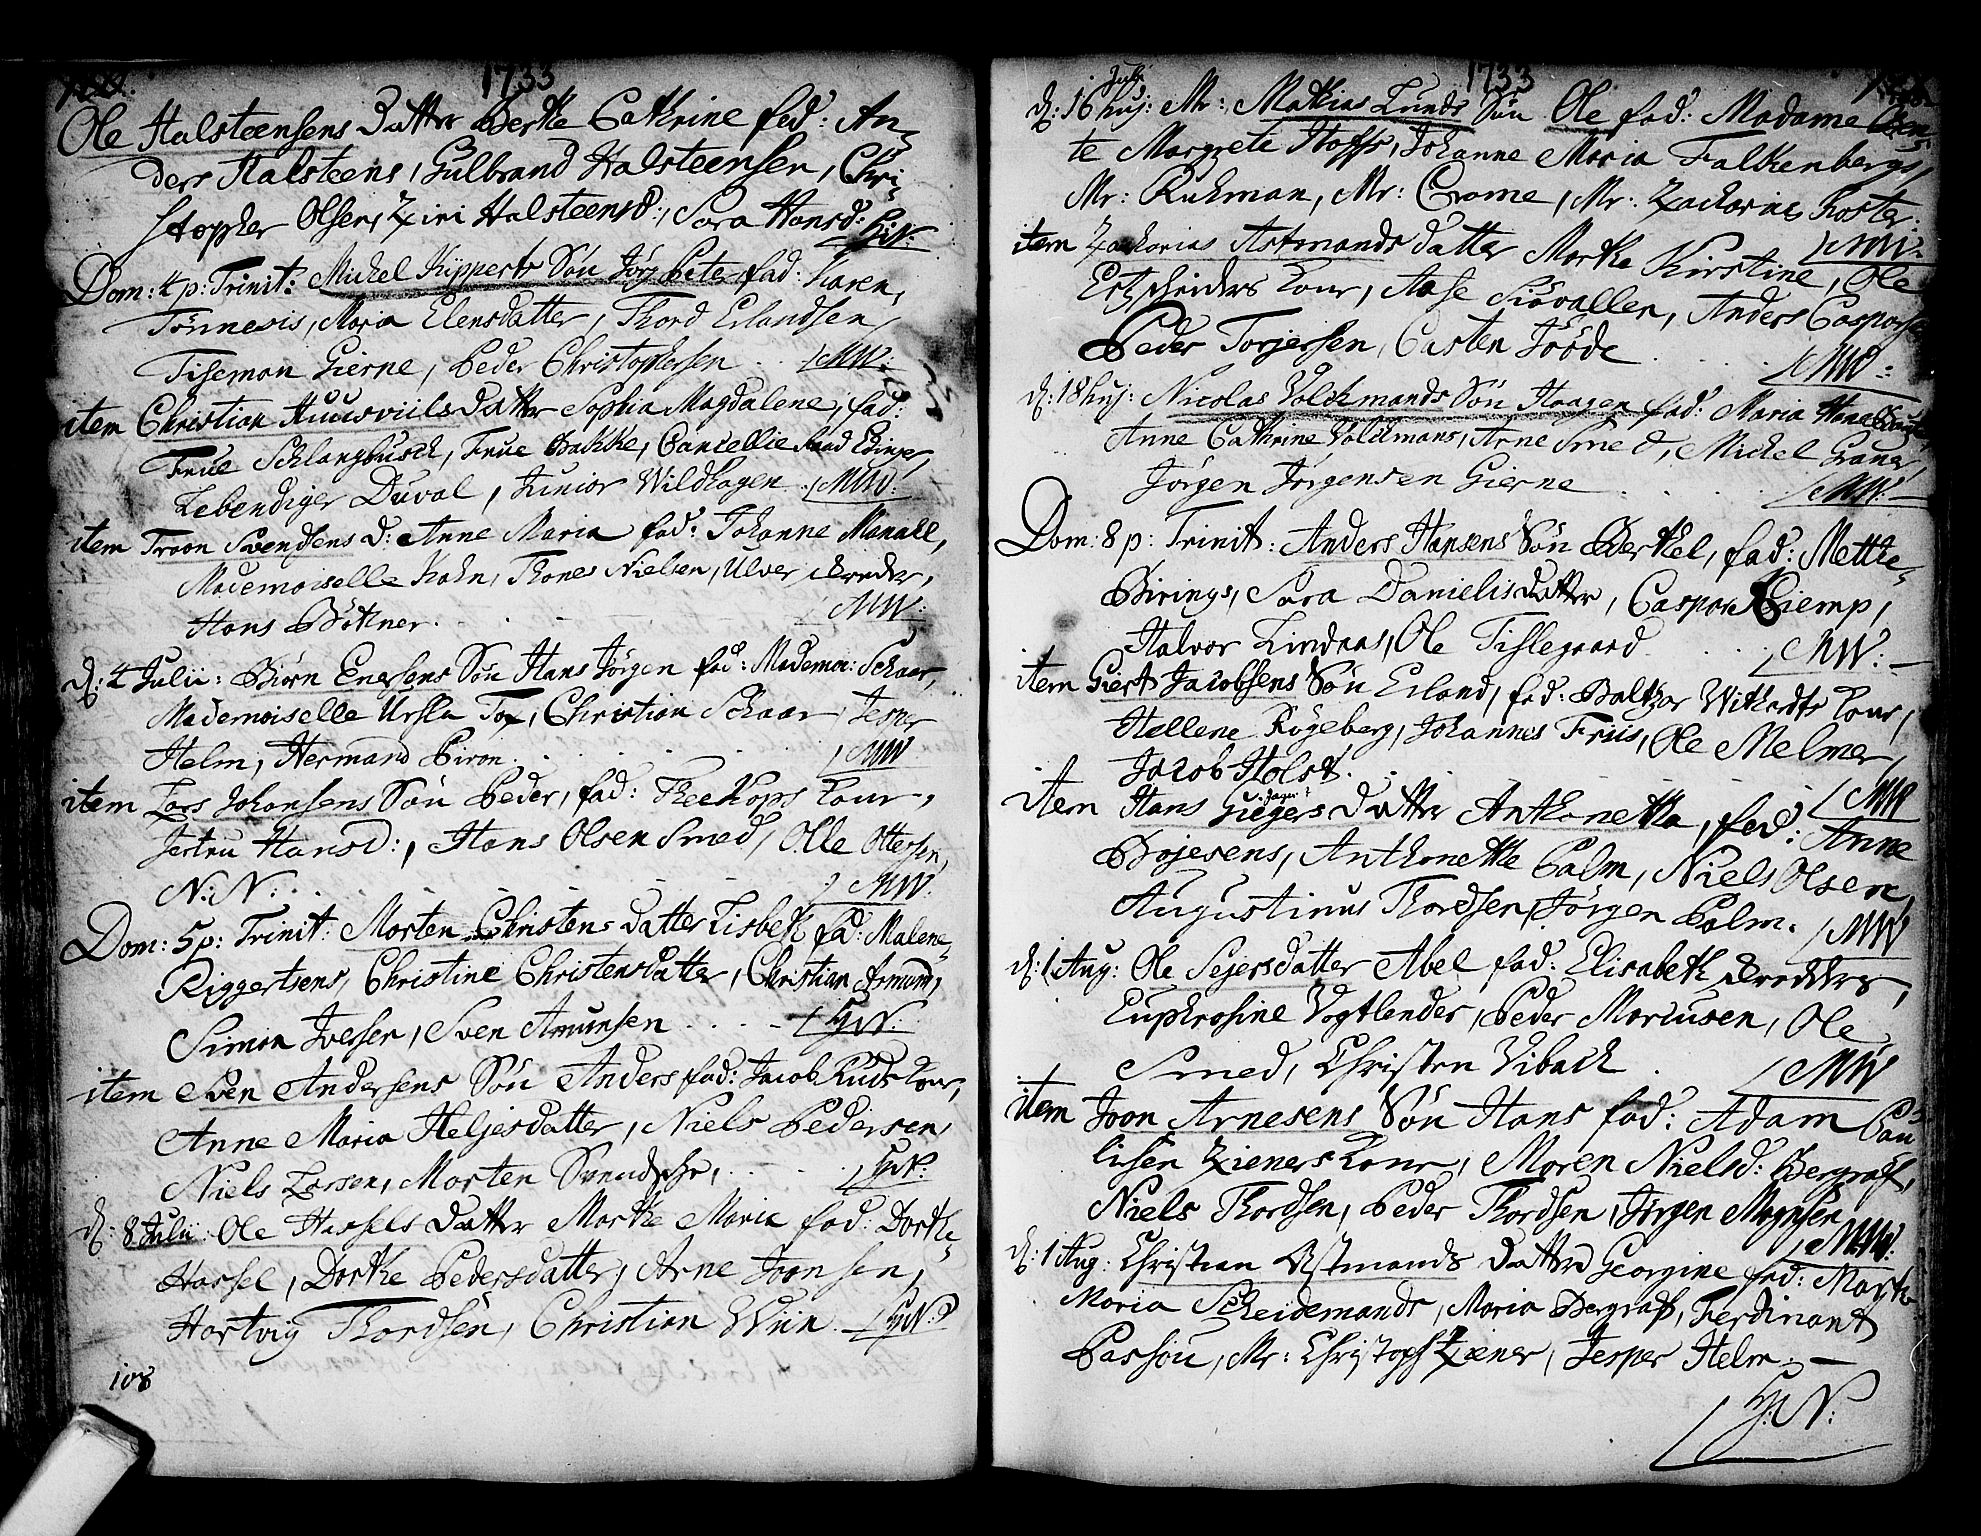 1733
Ole Halsteensens Datter Berte Cathrine fad: An-
ders Halsteens, Gulbrand Halsteensen, Chri-
stopher Olsen, Ziri Halsteensd:, Sara Hansd: H:N:
Dom: 4 p: Trinit: Michel Küpperts Søn Jørg Peter fad: Karen
Tönnesis, Maria Elensdatter, Thord Erlandsen,
Tiseman Gierne, Peder Christophersen MW:
item Christian Huusviils Datter Sophia Magdalene, fad:
Frue Schlangbusch, Frue Bakke, Cancellie Raad Edinger,
Lebendiger Duval, Junior Wildhagen MW:
item Troon Svendsens D: Anne Maria fad: Johanne Manall,
Mademoiselle Hahn, Thones Nielsen, Ulver Bredder,
Hans Bötkner. MW:
d: 4 Julii: Biørn Enersens Søn Hans Jørgen fad: Mademoi: Schaar,
Mademoiselle Ursla Tax, Christian Schaar, Jesper
Helm, Hermand Piron. MW
item Lars Johansens Søn Peder, fad: Thee Kops Kour,
Jertru Hansd:, Hans Olsen Smed, Olle Ottersen,
N: N: MW:
Dom: 5 p: Trinit: Morten Christens Datter Lisbeth fad: Malene
Riggertsens, Christine Christensdatter, Christian Armand,
Simon Iversen, Sven Amunsen H:N:
item Sven Andersens Søn Anders fad: Jacob Ruds Kour,
Anne Maria Heljesdatter, Niels Pedersen,
Niels Larsen, Morten Svendsen, H:N:
d: 8 Julii: Ole Hassels Datter Marthe Maria fad: Dorthe
Hassel, Dorthe Pedersdatter, Arne Joensen,
Hartvig Thordsen, Christian Wiin H:N:
108
1733
Julii
d: 16 huj: Mr: Mathias Lunds Søn Ole fad: Madame Ben-
te Margrete Hoffs, Johanne Maria Falkenbergs,
Mr: Rukman, Mr: Crome, Mr: Zacharias Koster: MW:
item Zacharias Astmands Datter Marthe Kirstine, Ole
Ertzscheiders Kour, Aase Siövallen, Anders Caspersen
Peder Torjersen, Carsten Jööde MW:
d: 18 huj: Nicolas Volckmands Søn Haagen fad: Maria
Anne Cathrine Volckmans, Arne Smed, Michel Graner,
Jörgen Jörgensen Gierne MW:
Dom: 8 p: Trinit: Anders Hansens Søn Berthel, fad: Mette
Birings, Sara Danielisdatter, Caspar Ziemp,
Halvor Lindaas, Ole Tislegaard MW:
item Giert Jacobsens Søn Erland, fad: Baltzar Withardts Kour,
Hellene Rögeberg, Johannes Friis, Ole Melmer,
Jacob Holst. MW
item Hans Giegers Datter Anthonetta, fad: Anne
Bojesens, Anthonette Palm, Niels Olsen,
Augustinus Thordsen, Jörgen Palm. MW
d: 1 Aug: Ole Sejersdatter Abel fad: Elisabeth Bredders,
Euphrosine Vogtlender, Peder Marcusen, Ole
Smed, Christen Viback MW
item Joon Arnesens Søn Hans fad: Adam Pau-
lisen Zieners Kour, Maren Nielsd: Bergraf,
Niels Thordsen, Peder Thordsen, Jørgen Mognsen MW:
d: 1 Aug: Christian Ostmands Datter Georgine fad: Marthe
Maria Scheidemands, Maria Bergraff, Ferdinant
Passou, Mr: Christoph Ziener, Jesper Helm
H:N: